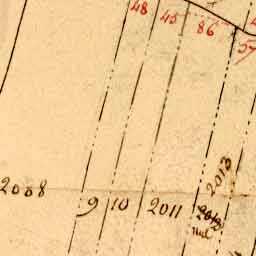 48 45 86 57
2008 9 10 2011 2013